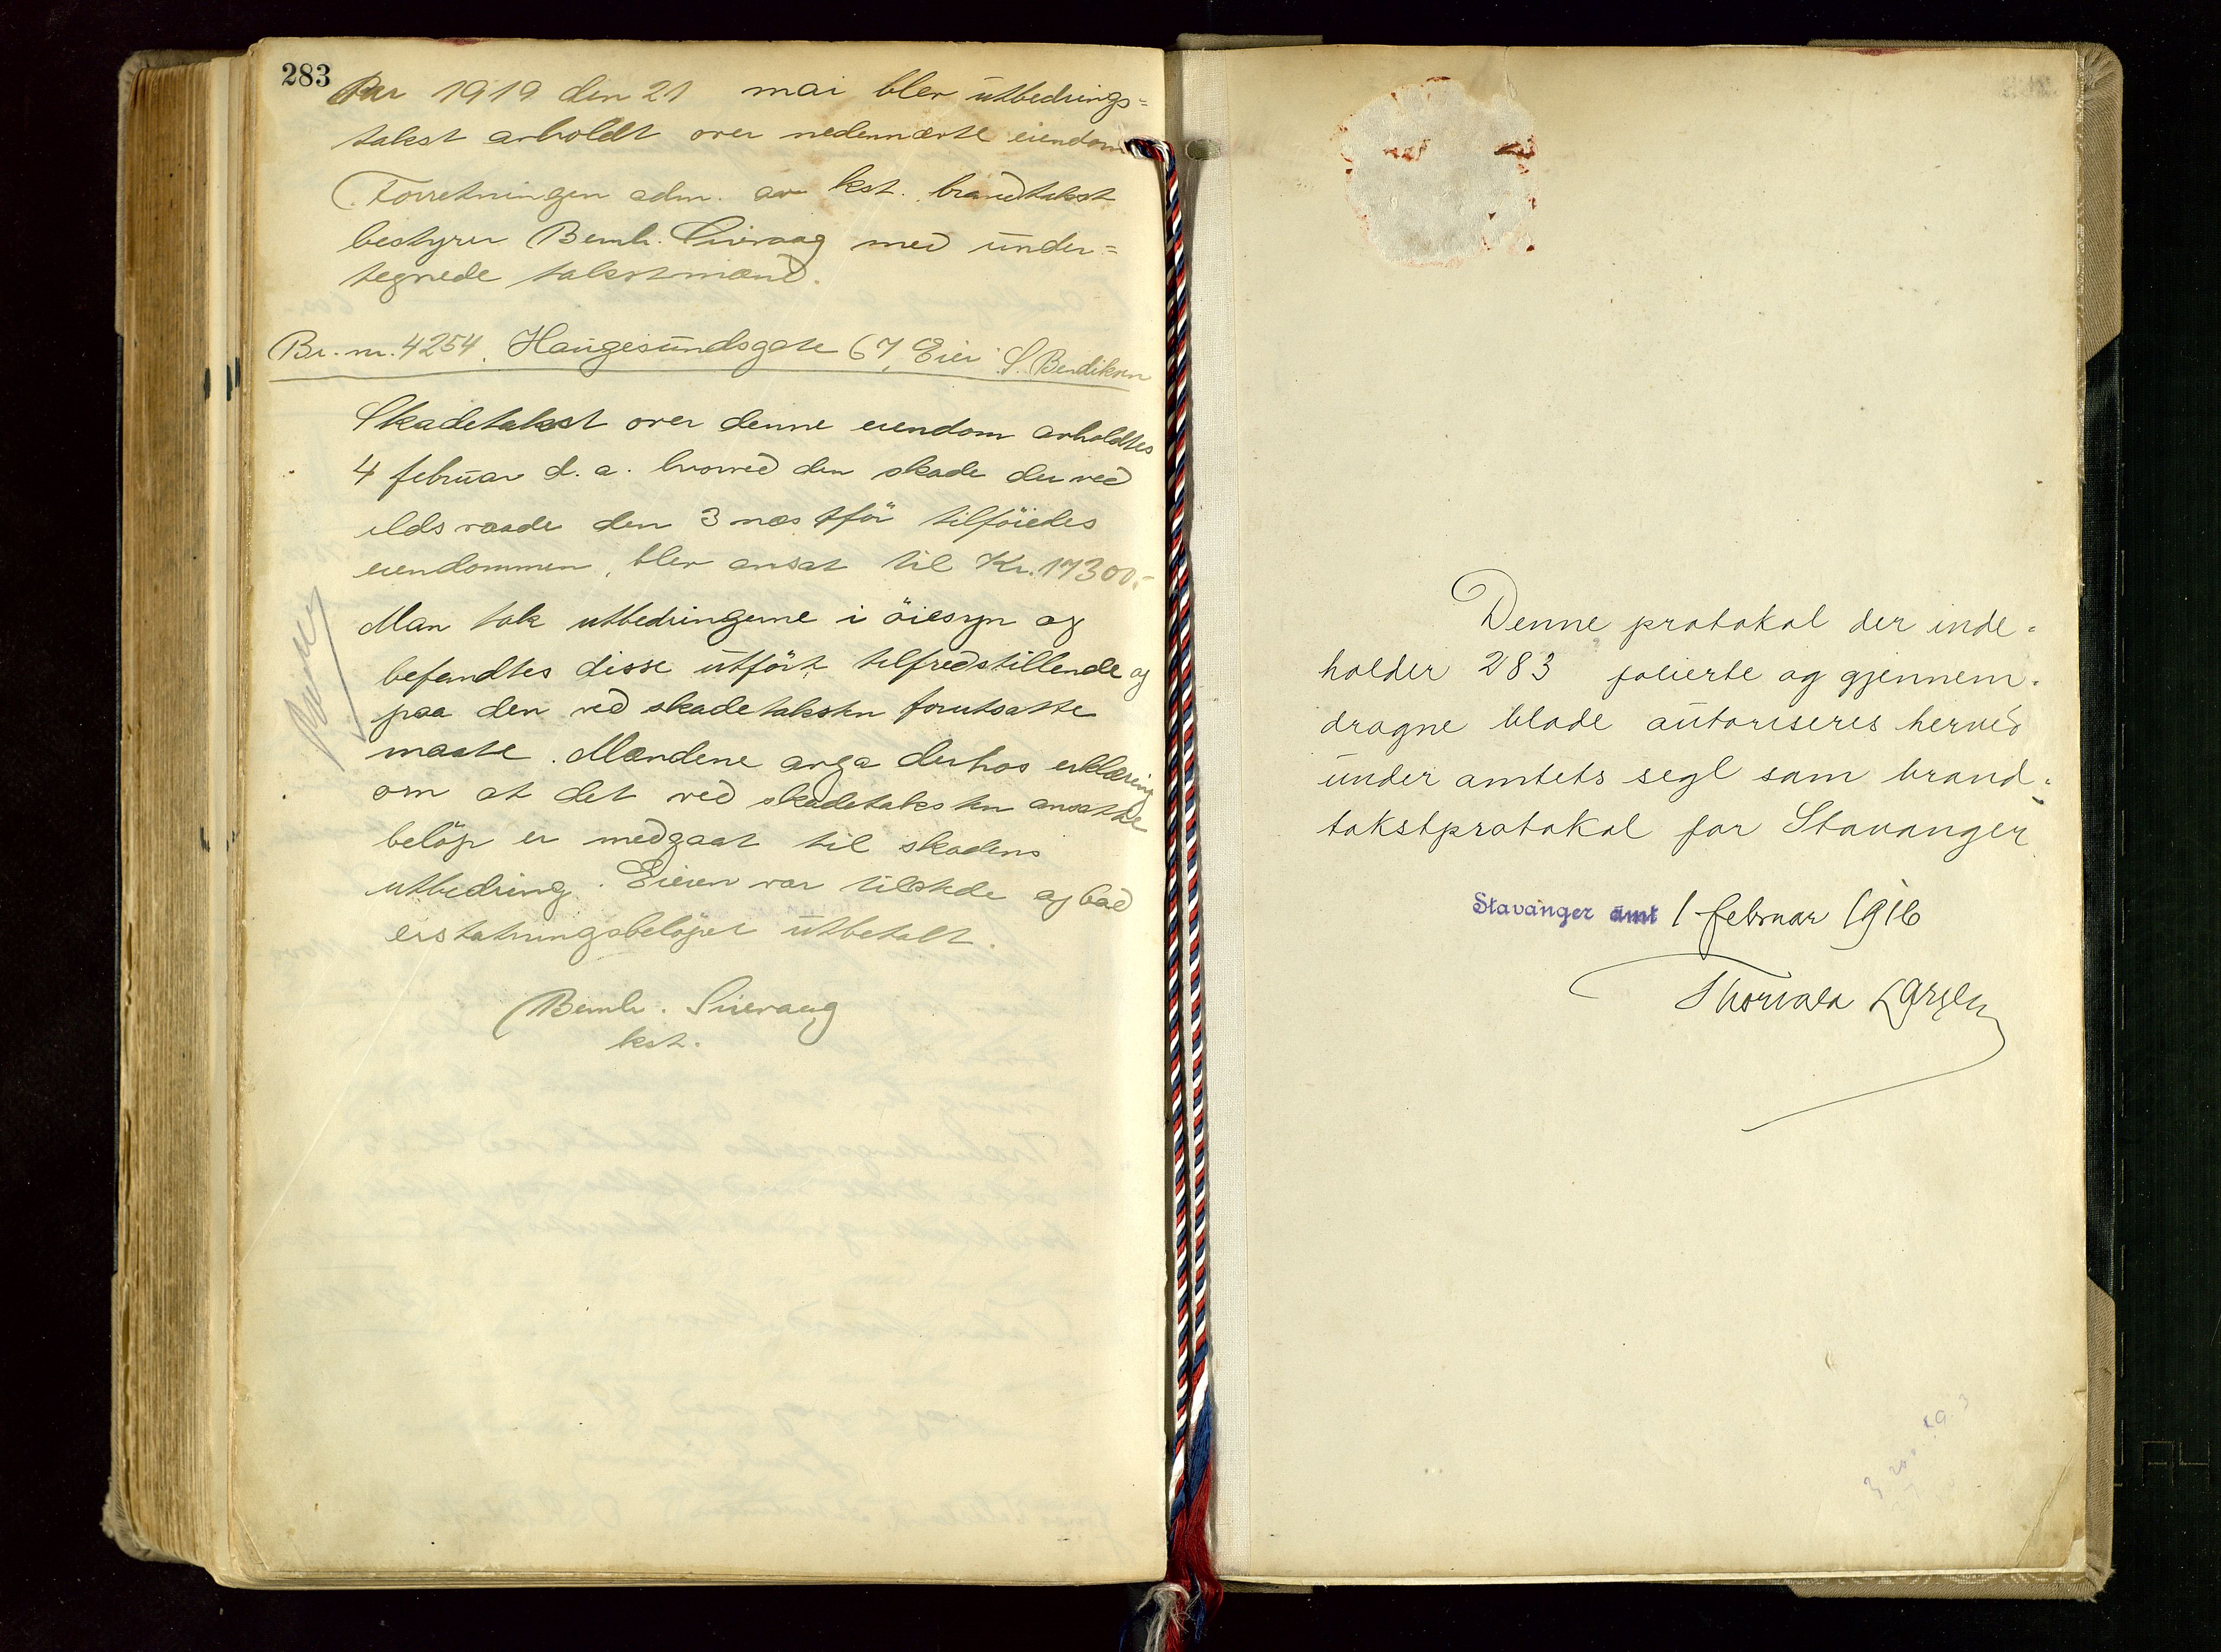 283
Aar 1919 den 21 mai blev utbedrings=
takst avholdt over nedennævnte eiendom
Forretningen adm. av kst. brandtakst
bestyrer Bernh. Sirevaag med under=
tegnede takstmænd.
Br. nr. 4254. Haugesundsgate 67, Eier S. Bendiksen
Skadetakst over denne eiendom avholdtes
4 februar d. a. hvorved den skade der ved
ildsvaade den 3 næstför tilföiedes
eiendommen, blev ansat til Kr. 17300.-
Man tok utbedringerne i öiesyn og
befandtes disse utfört tilfredstillende og
paa den ved skadetaksten forutsatte
maate. Mændene avga derhos erklæring
om at det ved skadetaksten ansatte
belöp er medgaat til skadens
utbedring. Eieren var tilstede og bad
erstatningsbelöpet utbetalt.
Bernh. Sirevaag
kst.
Denne protokol der inde=
holder 283 folierte og gjennem=
dragne blade autoriseres herved
under amtets segl som brand=
takstprotokol for Stavanger
Stavanger amt 1 februar 1916
Thorvald Larsen